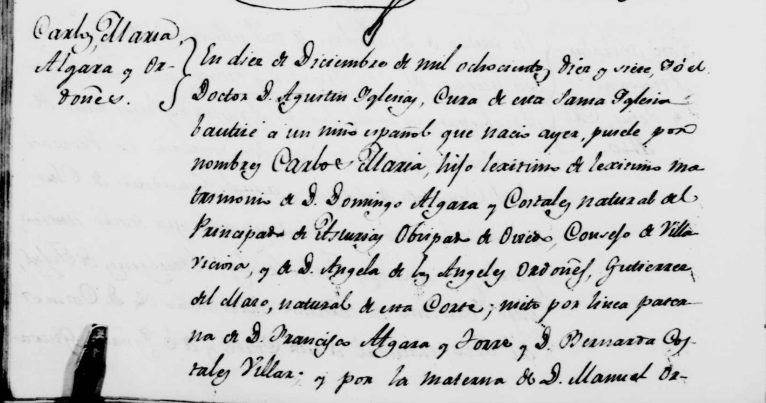 Carlos Maria,
Algara y Or-
doñes.
En diez de Diciembre de mil ochocientos diez y siete, Yó el
Doctor D. Agustin Yglesias, Cura de esta Santa Yglesia
bautizé a un niño español que nació ayer, pusele por
nombres Carlos Maria, hijo lexitimo de lexitimo ma
trimonio de D. Domingo Algara y Costales natural del
Principado de Asturias Obispado de Oviedo, Consejo de Villa
viciosa, y de D. Angela de los Angeles Ordoñes, Gutierrez
del Mazo, natural de esta Corte; nieto por linea pater
na de D. Francisco Algara y Torre y D. Bernarda Cos
tales Villar; y por la materna de D. Manuel Or-